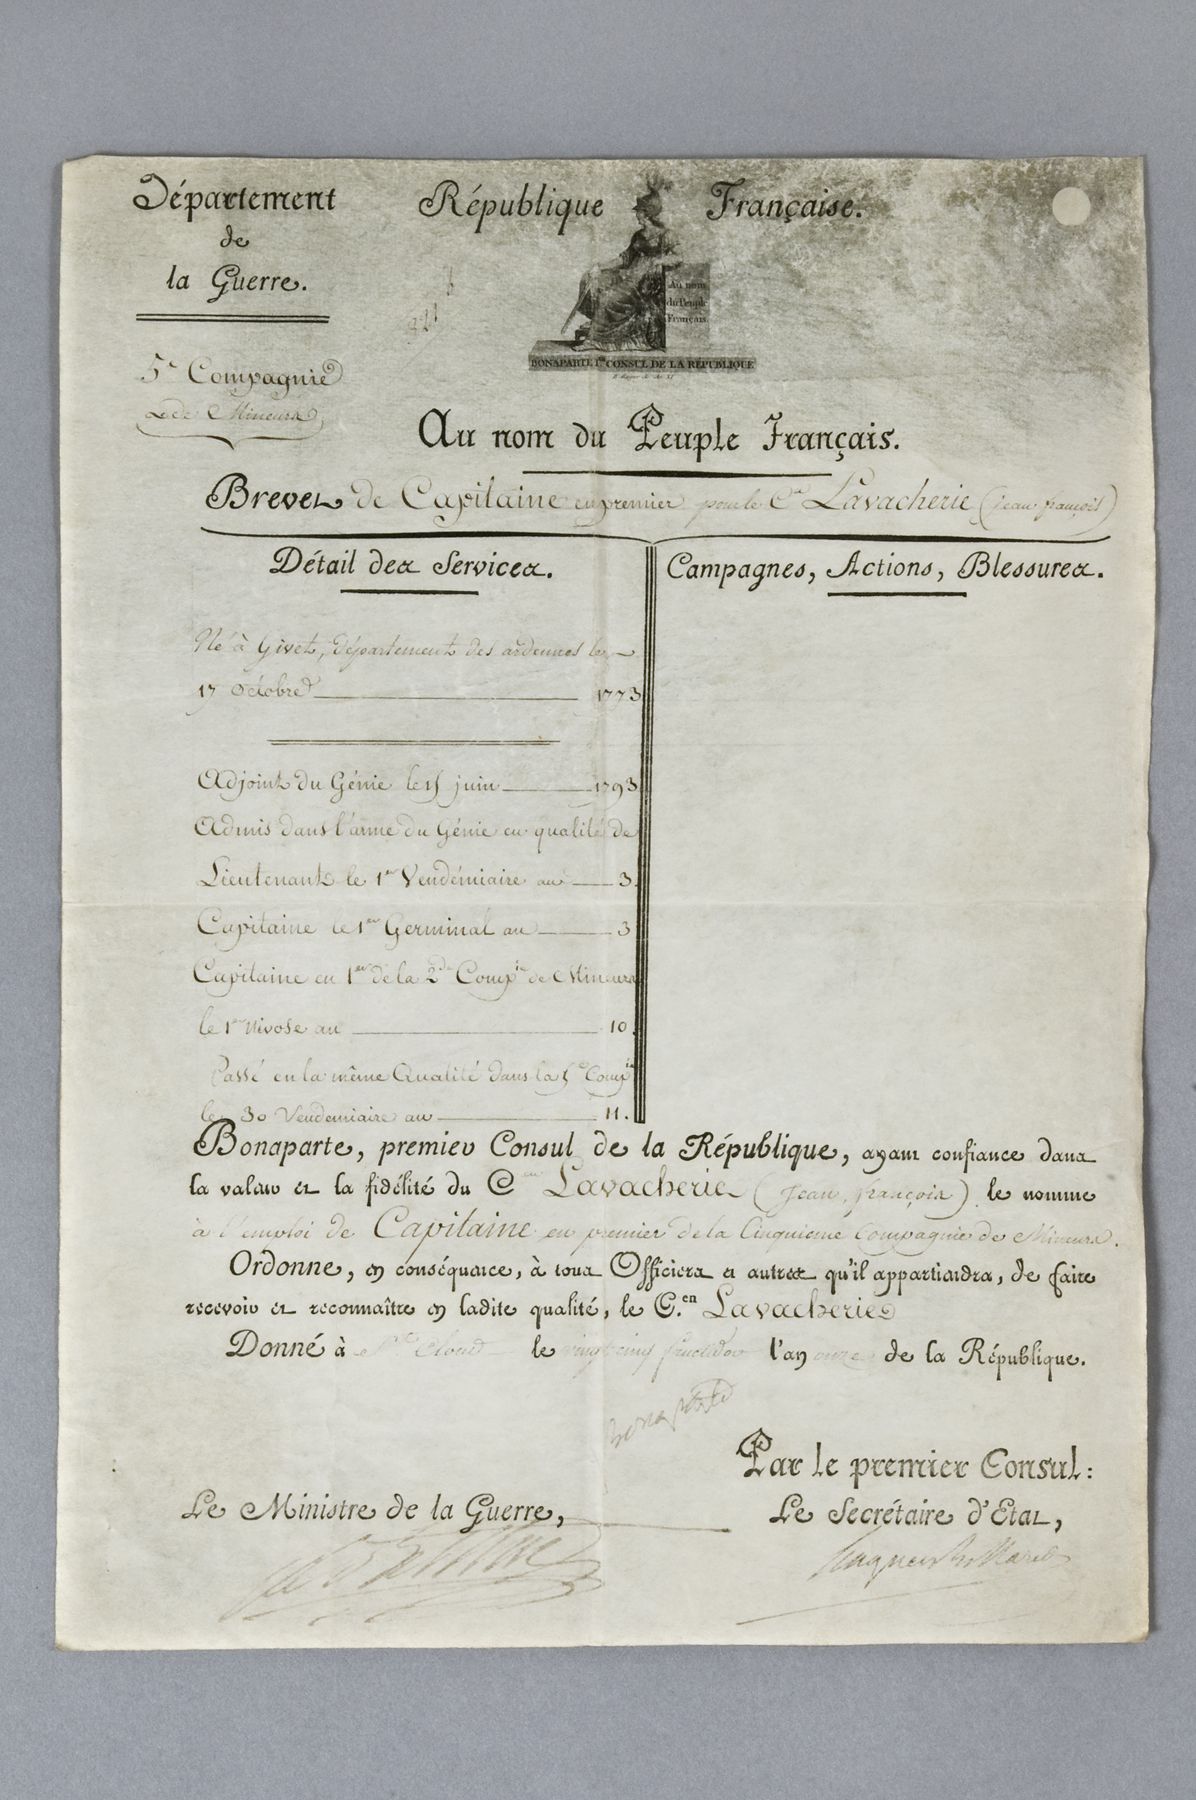 Département
de
la Guerre.
République Française.
Au nom
du Peuple
Français.
BONAPARTE 1er CONSUL DE LA RÉPUBLIQUE
5e Compagnie
de Mineurs
Au nom du Peuple Français.
Brevet de Capitaine en premier pour le Cen Lavacherie (jean françois)
Détail des Services.
Campagnes, Actions, Blessures.
Né à Givet, département des ardennes le
17 Octobre 1773
Adjoint du Génie le 15 juin 1793
Admis dans l'arme du Génie en qualité de
Lieutenant le 1er Vendémiaire an 3.
Capitaine le 1er Germinal an 3
Capitaine en 1er de la 2de Compie de Mineurs
le 1er Nivose an 10.
Passé en la même Qualité dans la 5e Compie
le 30 Vendemiaire an 11.
Bonaparte, premier Consul de la République, ayant confiance dans
la valeur et la fidélité du Cen Lavacherie (Jean, françois) le nomme
à l'emploi de Capitaine en premier de la Cinquieme Compagnie de Mineurs.
Ordonne, en conséquence, à tous Officiers et autres qu'il appartiendra, de faire
recevoir et reconnaître en ladite qualité, le C.en Lavacherie
Donné à St. Cloud le vingt cinq fructidor l'an onze de la République.
Bonaparte
Par le premier Consul:
Le Ministre de la Guerre,
Le Secrétaire d'Etat,
Hugues B. Maret